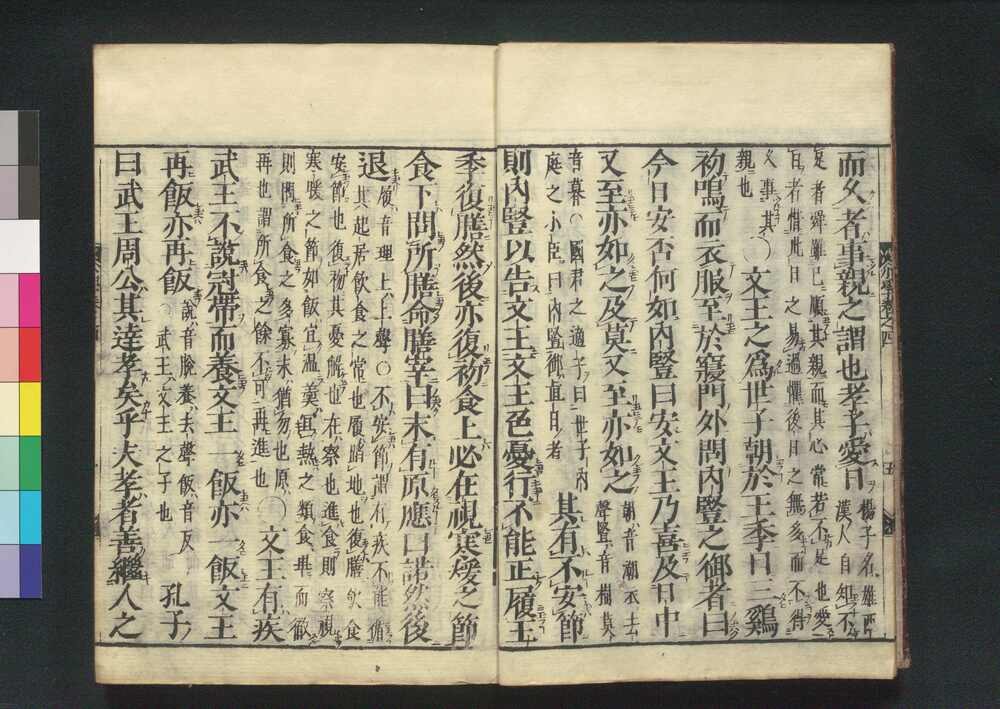 而久者事親之謂也孝子愛日 楊子名雄西漢人自知不
足者舜雖已順其親而其心常若不足也愛
日者惜此日之易過懼後日之無多而不得
久事其親也 〇文王之爲世子朝於王季日三鷄
初鳴而衣服至於寢門外問內豎之御者曰
今日安否何如內豎曰安文王乃喜及日中
又至亦如之及莫又至亦如之 朝音潮衣去聲豎音樹莫
音暮〇國君之適子曰世子內庭之小臣曰內豎御直日者
其有不安節
則內豎以告文王文王色憂行不能正履王
季復膳然後亦復初食上必在視寒煖之節
食下問所膳命膳宰曰末有原應曰諾然後
退 履音理上上聲〇不安節謂有疾不能循
其起居飲食之常也履踏地也復膳飲食
安節也復初其憂解也在察也進食則察視
寒煖之節如飯宜溫羹宜熱之類食畢而徹
則問所食之多寡末猶勿也原
再也謂所食之餘不可再進也 〇文王有疾
武王不說冠帶而養文王一飯亦一飯文王
再飯亦再飯 說音脫養去聲飯音反
武王文王之子也 孔子
曰武王周公其達孝矣乎夫孝者善繼人之